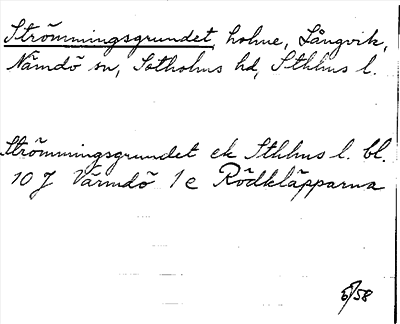 Strömmingsgrundet, holme, Långvik,
Nämdö sn, Sotholms hd, Sthlms l.
Strömmingsgrundet ek Sthlms l. bl.
10 J Värmdö 1 e Rödkläpparna
5/58